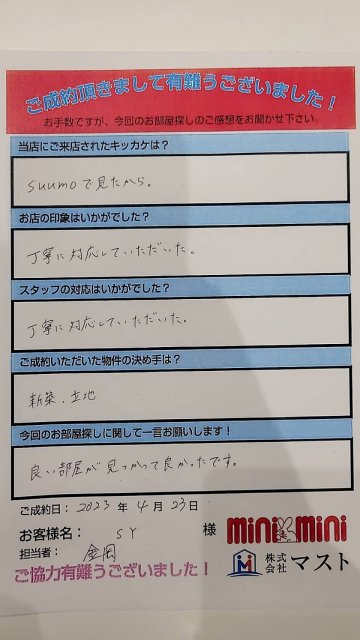 ご成約頂きまして有難うございました!
お手数ですが、今回のお部屋探しのご感想をお聞かせ下さい。
当店にご来店されたキッカケは?
suumoで見たから。
お店の印象はいかがでした?
丁寧に対応していただいた。
スタッフの対応はいかがでした?
丁寧に対応していただいた。
ご成約いただいた物件の決め手は?
新築、立地
今回のお部屋探しに関して一言お願いします!
良い部屋が見つかって良かったです。
ご成約日: 2023 年 4 月 23日
お客様名: SY 様
担当者: 金岡
ご協力有難うございました!
mini mini
株式会社 マスト